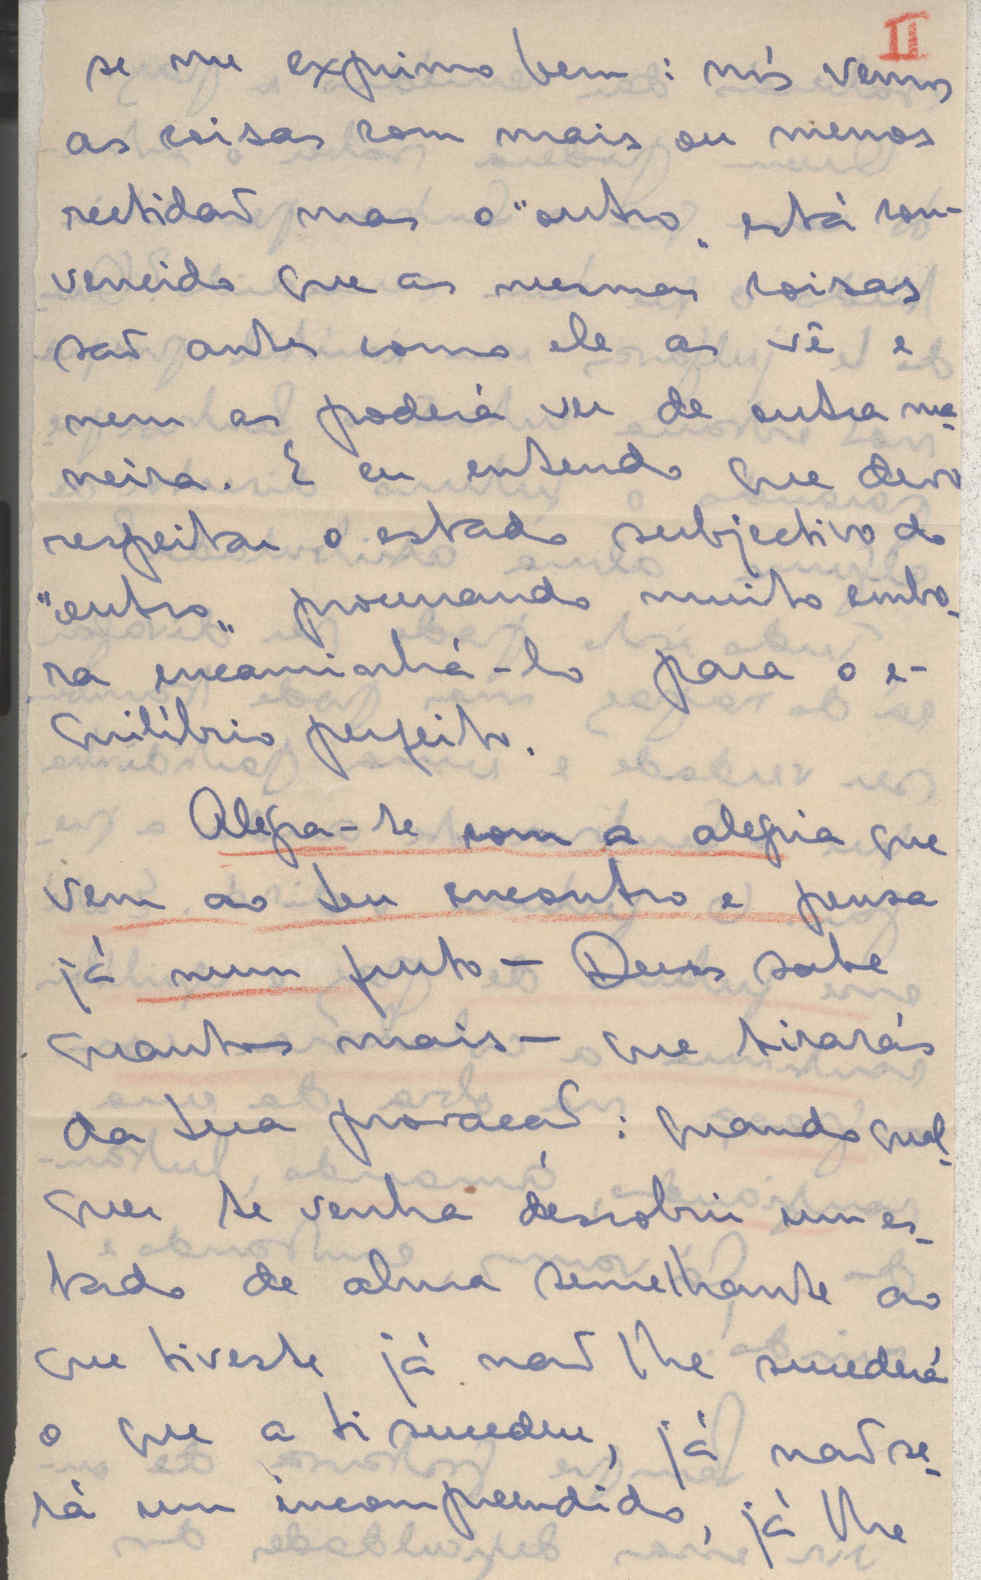 II
se me exprimo bem : nós vemos
as coisas com mais ou menos
rectidão mas o "outro" está con-
vencido que as mesmas coisas
são antes como ele as vê e
nem as poderá ver de outra ma-
neira. E eu entendo que devo
respeitar o estado subjectivo do
"outro" procurando muito embo-
ra encaminhá-lo para o e-
quilíbrio perfeito.
Alegra-te com a alegria que
vem ao teu encontro e pensa
já num fruto — Deus sabe
quantos mais — que tirarás
da tua provação : quando qual-
quer te venha descobrir um es-
tado de alma semelhante ao
que tiveste já não lhe sucederá
o que a ti sucedeu, já não se-
rá um incompreendido, já lhe